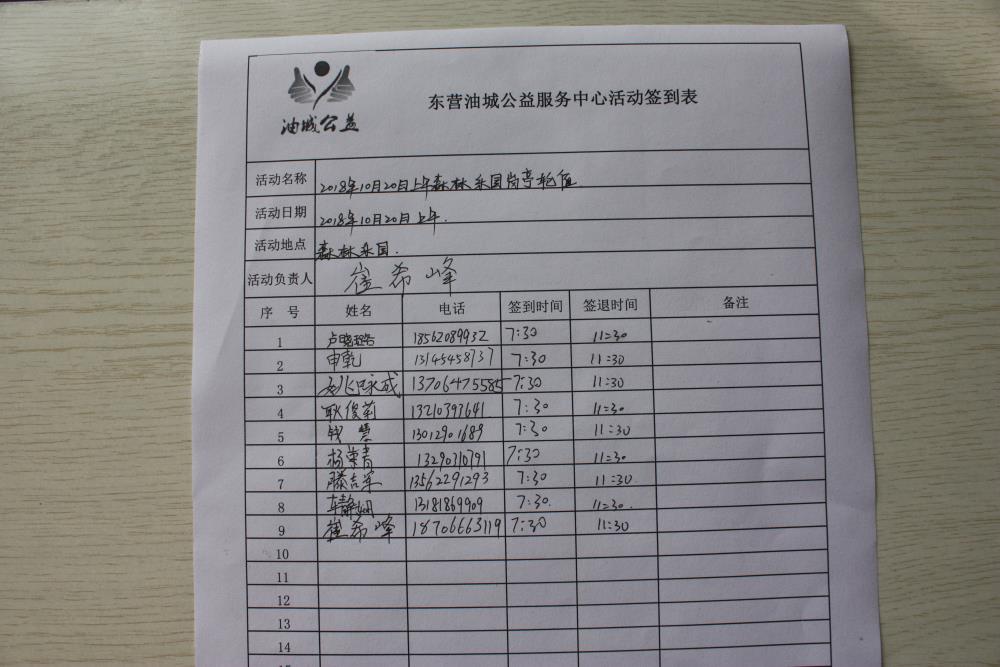 油城公益
东营油城公益服务中心活动签到表
活动名称 2018年10月20日上午森林乐园岗亭轮值
活动日期 2018年10月20日上午.
活动地点 森林乐园.
活动负责人 崔希峰
序 号 姓名 电话 签到时间 签退时间 备注
1 卢晓璐 18562089932 7:30 11:30
2 申乾 13145458737 7:30 11:30
3 13706475585 7:30 11:30
4 耿俊莉 13210397641 7:30 11:30
5 钱慧 13012901689 7:30 11:30
6 杨荣青 13290310791 7:30 11:30
7 滕吉军 13562291293 7:30 11:30
8 车静娴 13181869909 7:30. 11:30.
9 崔希峰 18706663119 7:30 11:30
10
11
12
13
14